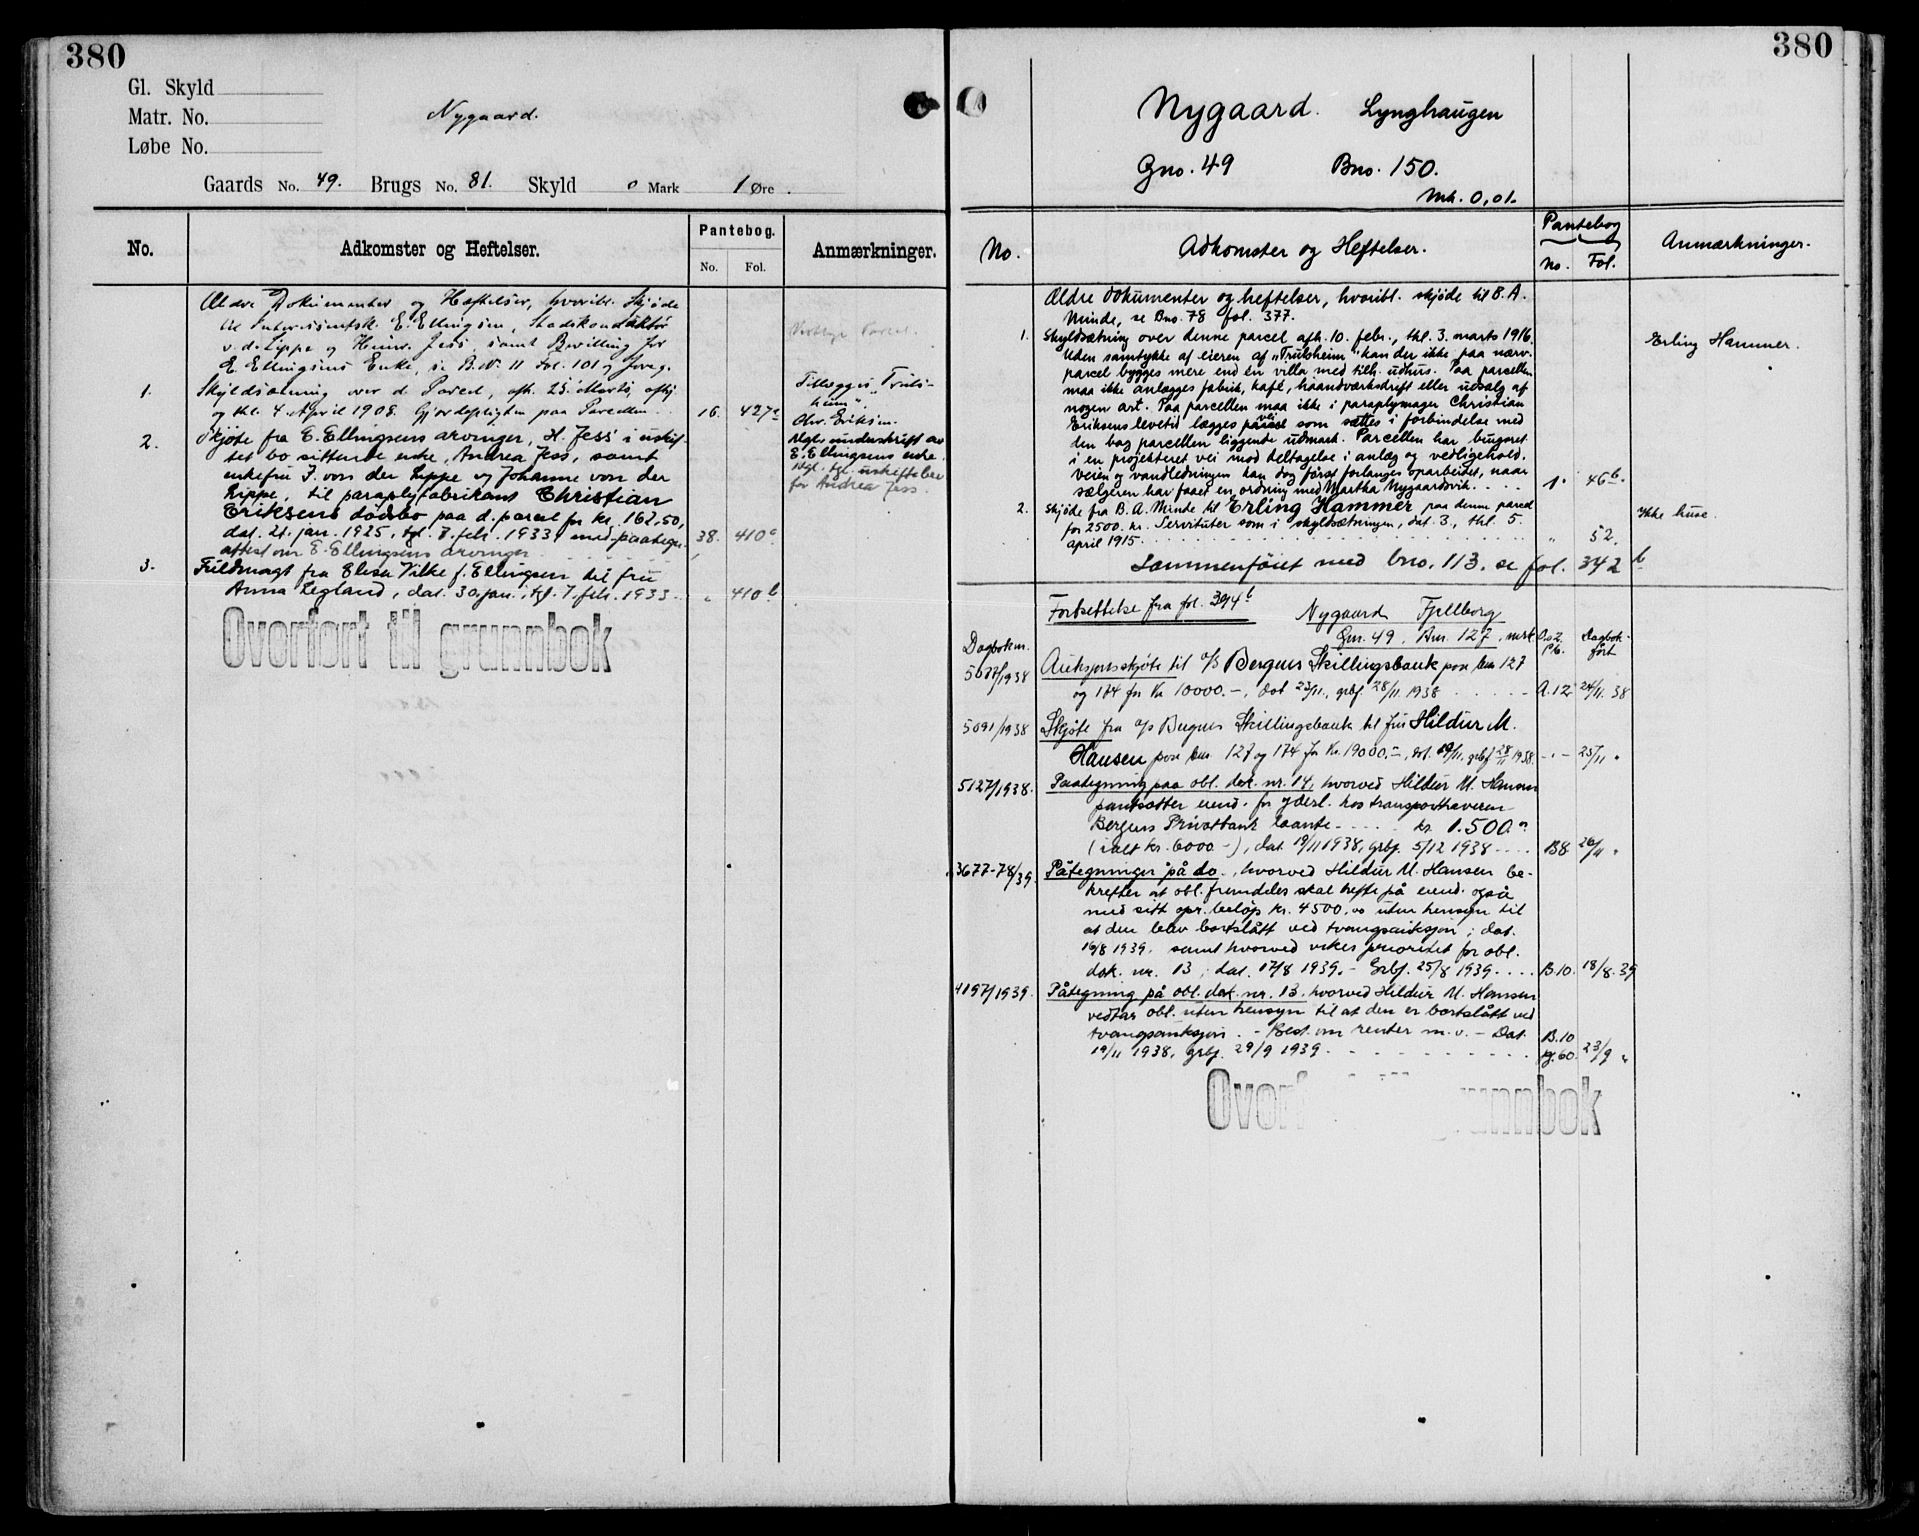 380
Gl. Skyld
Matr. No.
Løbe No.
Nygaard.
Gaards No. 49. Brugs No. 81. Skyld 0 Mark 1 Øre.
No.
Adkomster og Heftelser.
Pantebog.
No. Fol.
Anmærkninger.
Ældre Dokumenter og Heftelser, hvoribl. Skjøde
til E. Ellingsen, Stadskonduktør
v. d. Lippe og Henr. Jess, samt Bevilling for
E. Ellingsens Enke, se B.No 11 Fol. 101 og foreg.
1. Skyldsætning over d. Parcel, afh. 25 Marts, aflj.
og thl. 4 April 1908. Gjerdepligten paa Parcellen . . 16. 427a
Tillægges "Truls-
heim",
Chr. Eriksen.
2. Skjøte fra E. Ellingsens arvinger, H. Jess' i uskif-
tet bo sittende enke, Andrea Jess, samt
enkefru J. von der Lippe og Johanne von der
Lippe, til paraplyfabrikant Christian
Eriksens dødsbo paa d. parcel for kr. 162.50,
dat. 21. jan. 1925, tgl. 7. feb. 1933, med paategn.
attest om E. Ellingsens arvinger 38. 410a
Mgl. underskrift av
E. Ellingsens enke.
Mgl. for uskiftebev.
for Andrea Jess.
3. Fuldmagt fra Elisa Vilke f. Ellingsen til frue
Anna Legland, dat. 30. jan., tgl. 7. feb. 1933. " 410b
Overført til grunnbok
380
Nygaard. Lynghaugen
Gno. 49 Bno. 150.
Mk. 0,01.
No.
Adkomster og Heftelser.
Pantebog
No. Fol.
Anmærkninger.
Ældre dokumenter og heftelser, hvoribl. skjøde til B. A.
Minde, se Bno. 78 fol. 377.
1. Skyldsætning over denne parcel afh. 10. febr., thl. 3. marts 1916.
Uden samtykke af eieren af "Trulsheim" kan der ikke paa nærv.
parcel bygges mere end én villa med tilh. udhus. Paa parcellen
maa ikke anlægges fabrik, kafé, haandværksdrift eller udsalg af
nogen art. Paa parcellen maa ikke i paraplymager Christian
Eriksens levetid lægges vei som sættes i forbindelse med
den bag parcellen liggende udmark. Parcellen har brugsret
i en projekteret vei mod deltagelse i anlæg og vedligehold.
Veien og vandledningen kan dog først forlanges oparbeidet, naar
sælgeren har faaet en ordning med Martha Nygaardsvik. . . . . 1. 46b.
Erling Hammer.
2. Skjøde fra B. A. Minde til Erling Hammer paa denne parcel
for 2500. kr. Servituter som i skyldsætningen, dat. 3., thl. 5.
april 1915. " 52.
Ikke huse.
Sammenføiet med bno. 113. se fol. 342 b
Fortsettelse fra fol. 394b Nygaard Fjellborg
Gnr. 49, Bnr. 127, mrk
Dagboknr. Dagbok-
ført
5077/1938 Auksjonsskjøte til A/S Bergens Skillingsbank paa bnr 127
og 174 for Kr 10000.-, dat 23/11, grbf. 28/11 1938 . . . . . A.12 24/11.38
5091/1938 Skjøte fra A/S Bergens Skillingsbank til fru Hildur M.
Hansen paa bnr. 127 og 174 for Kr. 19000.-, dat. 19/11, grbf 28/11 1938. - " - 25/11 "
5127/1938. Paategning paa obl. dok. nr. 14, hvorved Hildur M. Hansen
pantsætter eiend. for yderl. hos transporthaveren
Bergens Privatbank laante . . . . . kr. 1.500.-
(ialt kr. 6000.-), dat. 19/11 1938, grbf. 5/12 1938 . . . . B8 26/11 "
3677-78/39. Påtegninger på do., hvorved Hildur M. Hansen be-
krefter at obl. fremdeles skal hefte på eiend. også
med sitt opr. beløp kr. 4500.00 uten hensyn til
at den blev bortslått ved tvangsauksjon; dat.
16/8 1939. samt hvorved vikes prioritet for obl.
dok. nr. 13, dat. 17/8 1939. - Grbf. 25/8 1939 . . . . B.10. 18/8.39
4197/1939. Påtegning på obl. dok. nr. 13, hvorved Hildur M. Hansen
vedtar obl. uten hensyn til at den er bortslått ved
tvangsauksjon. - Best. om renter m. v. - Dat.
19/11 1938, grbf. 29/9 1939. B.10 pg. 60. 23/9 "